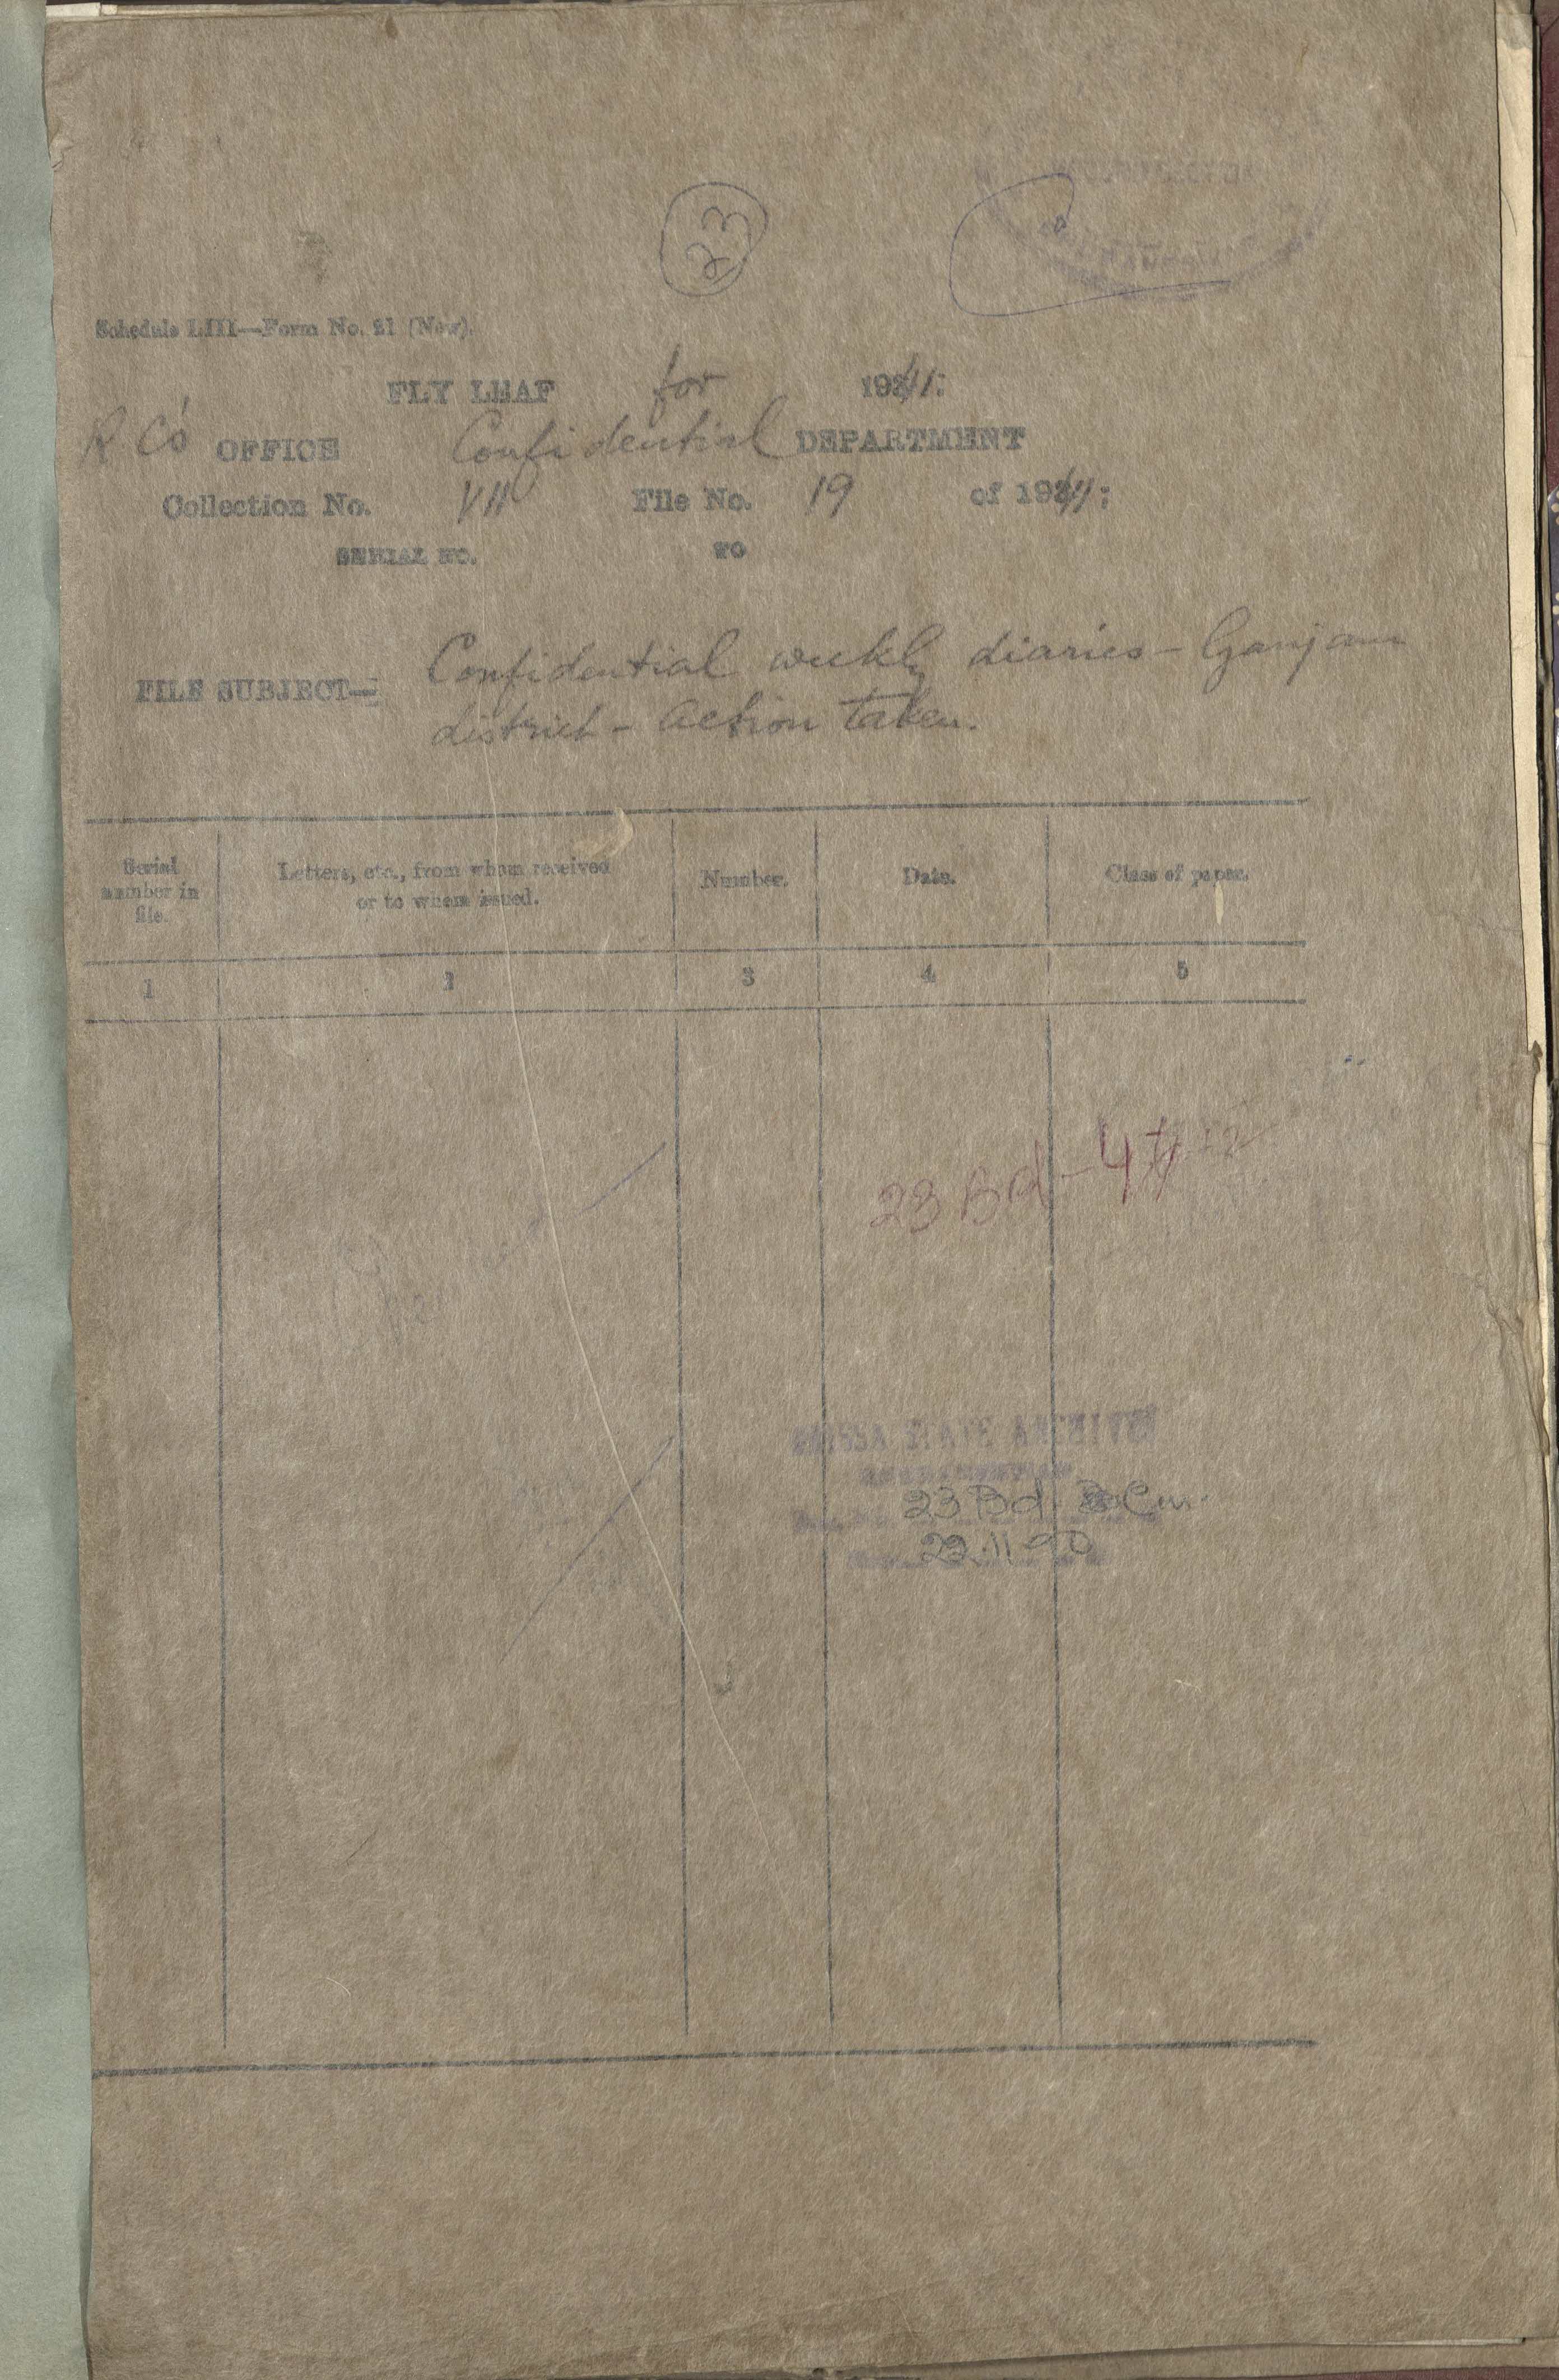 23
Schedule LIII—Form No. 21 (New).
FLY LEAF for 1941:
R C's OFFICE Confidential DEPARTMENT
Collection No. VII File No. 19 of 1941:
SERIAL NO. TO
FILE SUBJECT— Confidential weekly diaries - Ganjam
district - Action taken.
Serial number in file.
Letters, etc., from whom received or to whom issued.
Number.
Date.
Class of paper.
1 2 3 4 5
23 Bd - 4
ORISSA STATE ARCHIVES
23 Bd
22.11.90